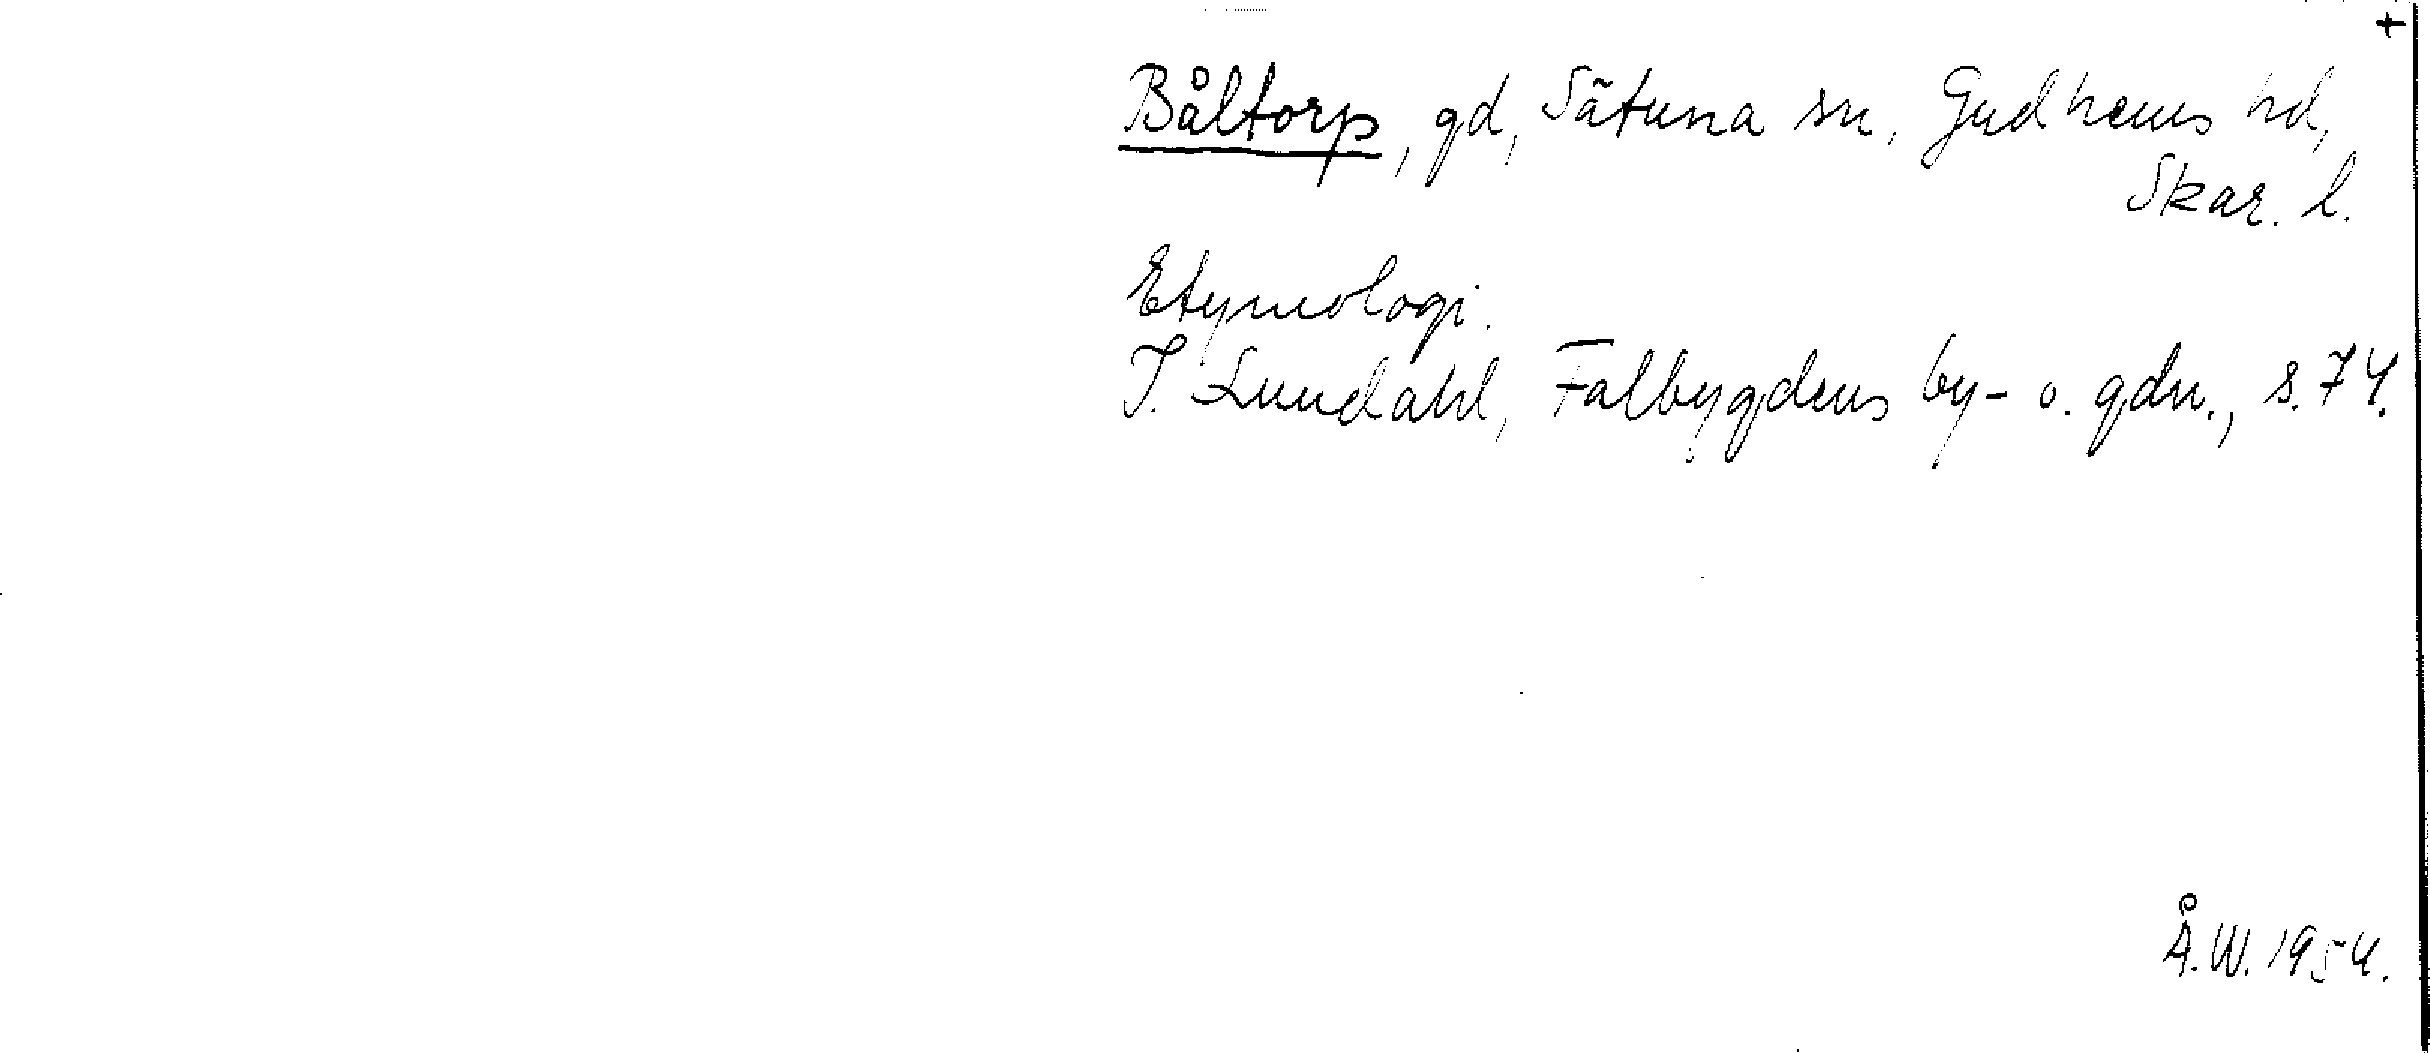 +
Båltorp, gd, Sätuna sn, Gudhems hd,
Skar. l.
Etymologi.
I. Lundahl, Falbygdens by- o. gdn., s. 74.
Å.W. 1954.